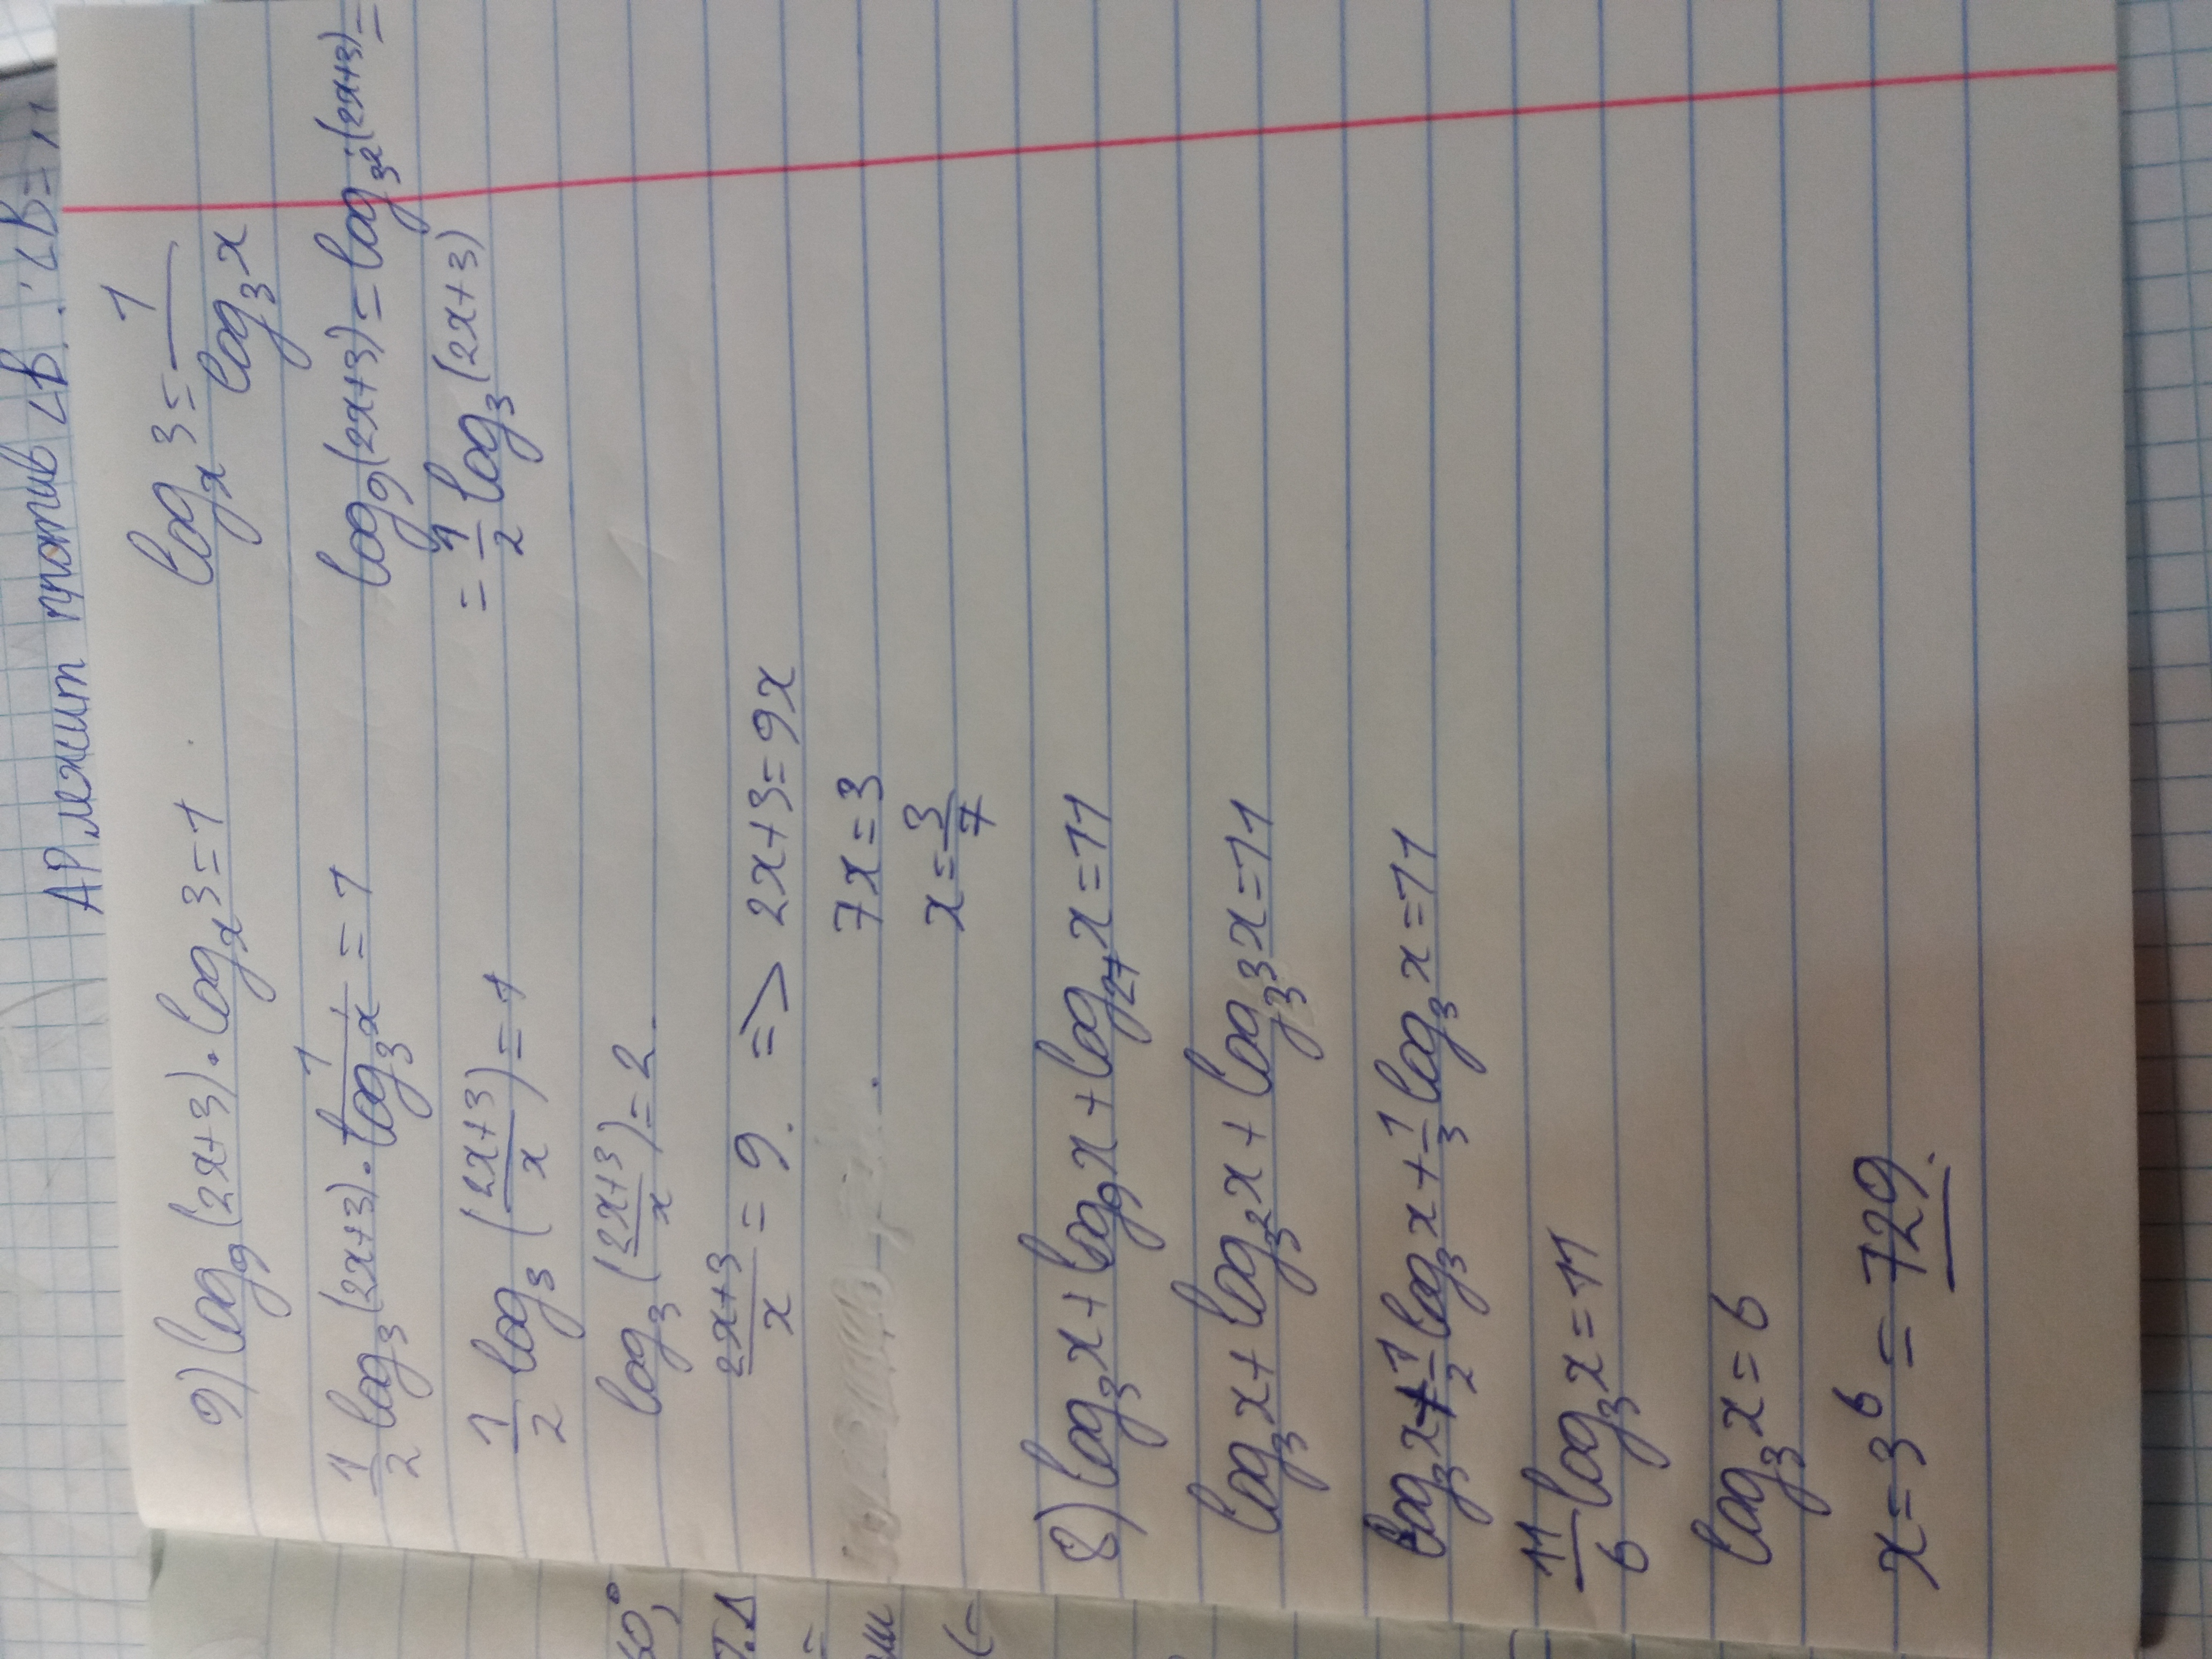 АР лежит против ∠B. ∠B=11
9) log₉(2x+3)·logₓ3=1
logₓ3=1/log₃x
1/2 log₃(2x+3)·1/log₃x=1
log₉(2x+3)=log₃²(2x+3)=
=1/2 log₃(2x+3)
1/2 log₃((2x+3)/x)=1
log₃((2x+3)/x)=2.
(2x+3)/x=9. => 2x+3=9x
7x=3
x=3/7
8) log₃x+log₉x+log₂₇x=11
log₃x+log₃²x+log₃³x=11
log₃x+1/2 log₃x+1/3 log₃x=11
11/6 log₃x=11
log₃x=6
x=3⁶=729.
60°,
т.Δ
=
(-